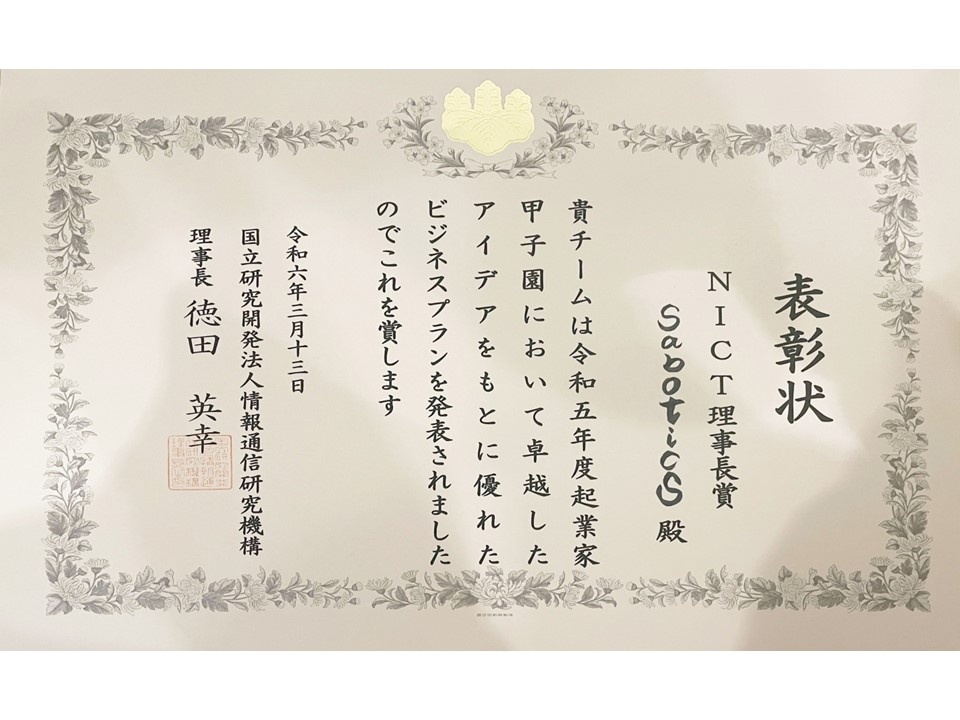 表彰状
NICT理事長賞
SaboticS 殿
貴チームは令和五年度起業家
甲子園において卓越した
アイデアをもとに優れた
ビジネスプランを発表されました
のでこれを賞します
令和六年三月十三日
国立研究開発法人情報通信研究機構
理事長 徳田 英幸